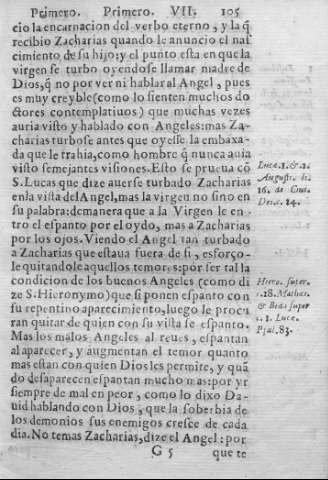 Primero. Primero. VII. 105
cio la encarnacion del verbo eterno, y la q̃
recibio Zacharias quando le anuncio el naſ
cimiento de ſu hijo: y el punto eſta en que la
virgen ſe turbo oyendoſe llamar madre de
Dios, q̃ no por ver ni hablar al Angel, pues
es muy creyble (como lo ſienten muchos do
ctores contemplatiuos) que muchas vezes
auria viſto y hablado con Angeles: mas Za-
charias turboſe antes que oyeſſe la embaxa-
da que le trahia, como hombre q̃ nunca auia
viſto ſemejantes viſiones. Eſto ſe prueua cõ
S. Lucas que dize auerſe turbado Zacharias
en la viſta del Angel, mas la virgen no ſino en
ſu palabra: demanera que a la Virgen le en-
tro el eſpanto por el oydo, mas a Zacharias
por los ojos. Viendo el Angel tan turbado
a Zacharias que eſtaua fuera de ſi, esforço-
le quitandole aquellos temores: por ſer tal la
condicion de los buenos Angeles (como di
ze S. Hieronymo) que ſi ponen eſpanto con
ſu repentino aparecimiento, luego le procu
ran quitar de quien con ſu viſta ſe eſpanto.
Mas los malos Angeles al reues, eſpantan
al aparecer, y augmentan el temor quanto
mas eſtan con quien Dios les permite, y quã
do deſaparecen eſpantan mucho mas: por yr
ſiempre de mal en peor, como lo dixo Da-
uid hablando con Dios, que la ſoberbia de
los demonios ſus enemigos creſce de cada
dia. No temas Zacharias, dize el Angel: por
G 5 que te
Luca. 1. & 2.
Auguſt. li.
16. de Ciui.
Dei. c. 24.
Hiero. ſuper.
c. 28. Matthæ.
& Beda ſuper
c. 1. Luca.
Pſal. 83.